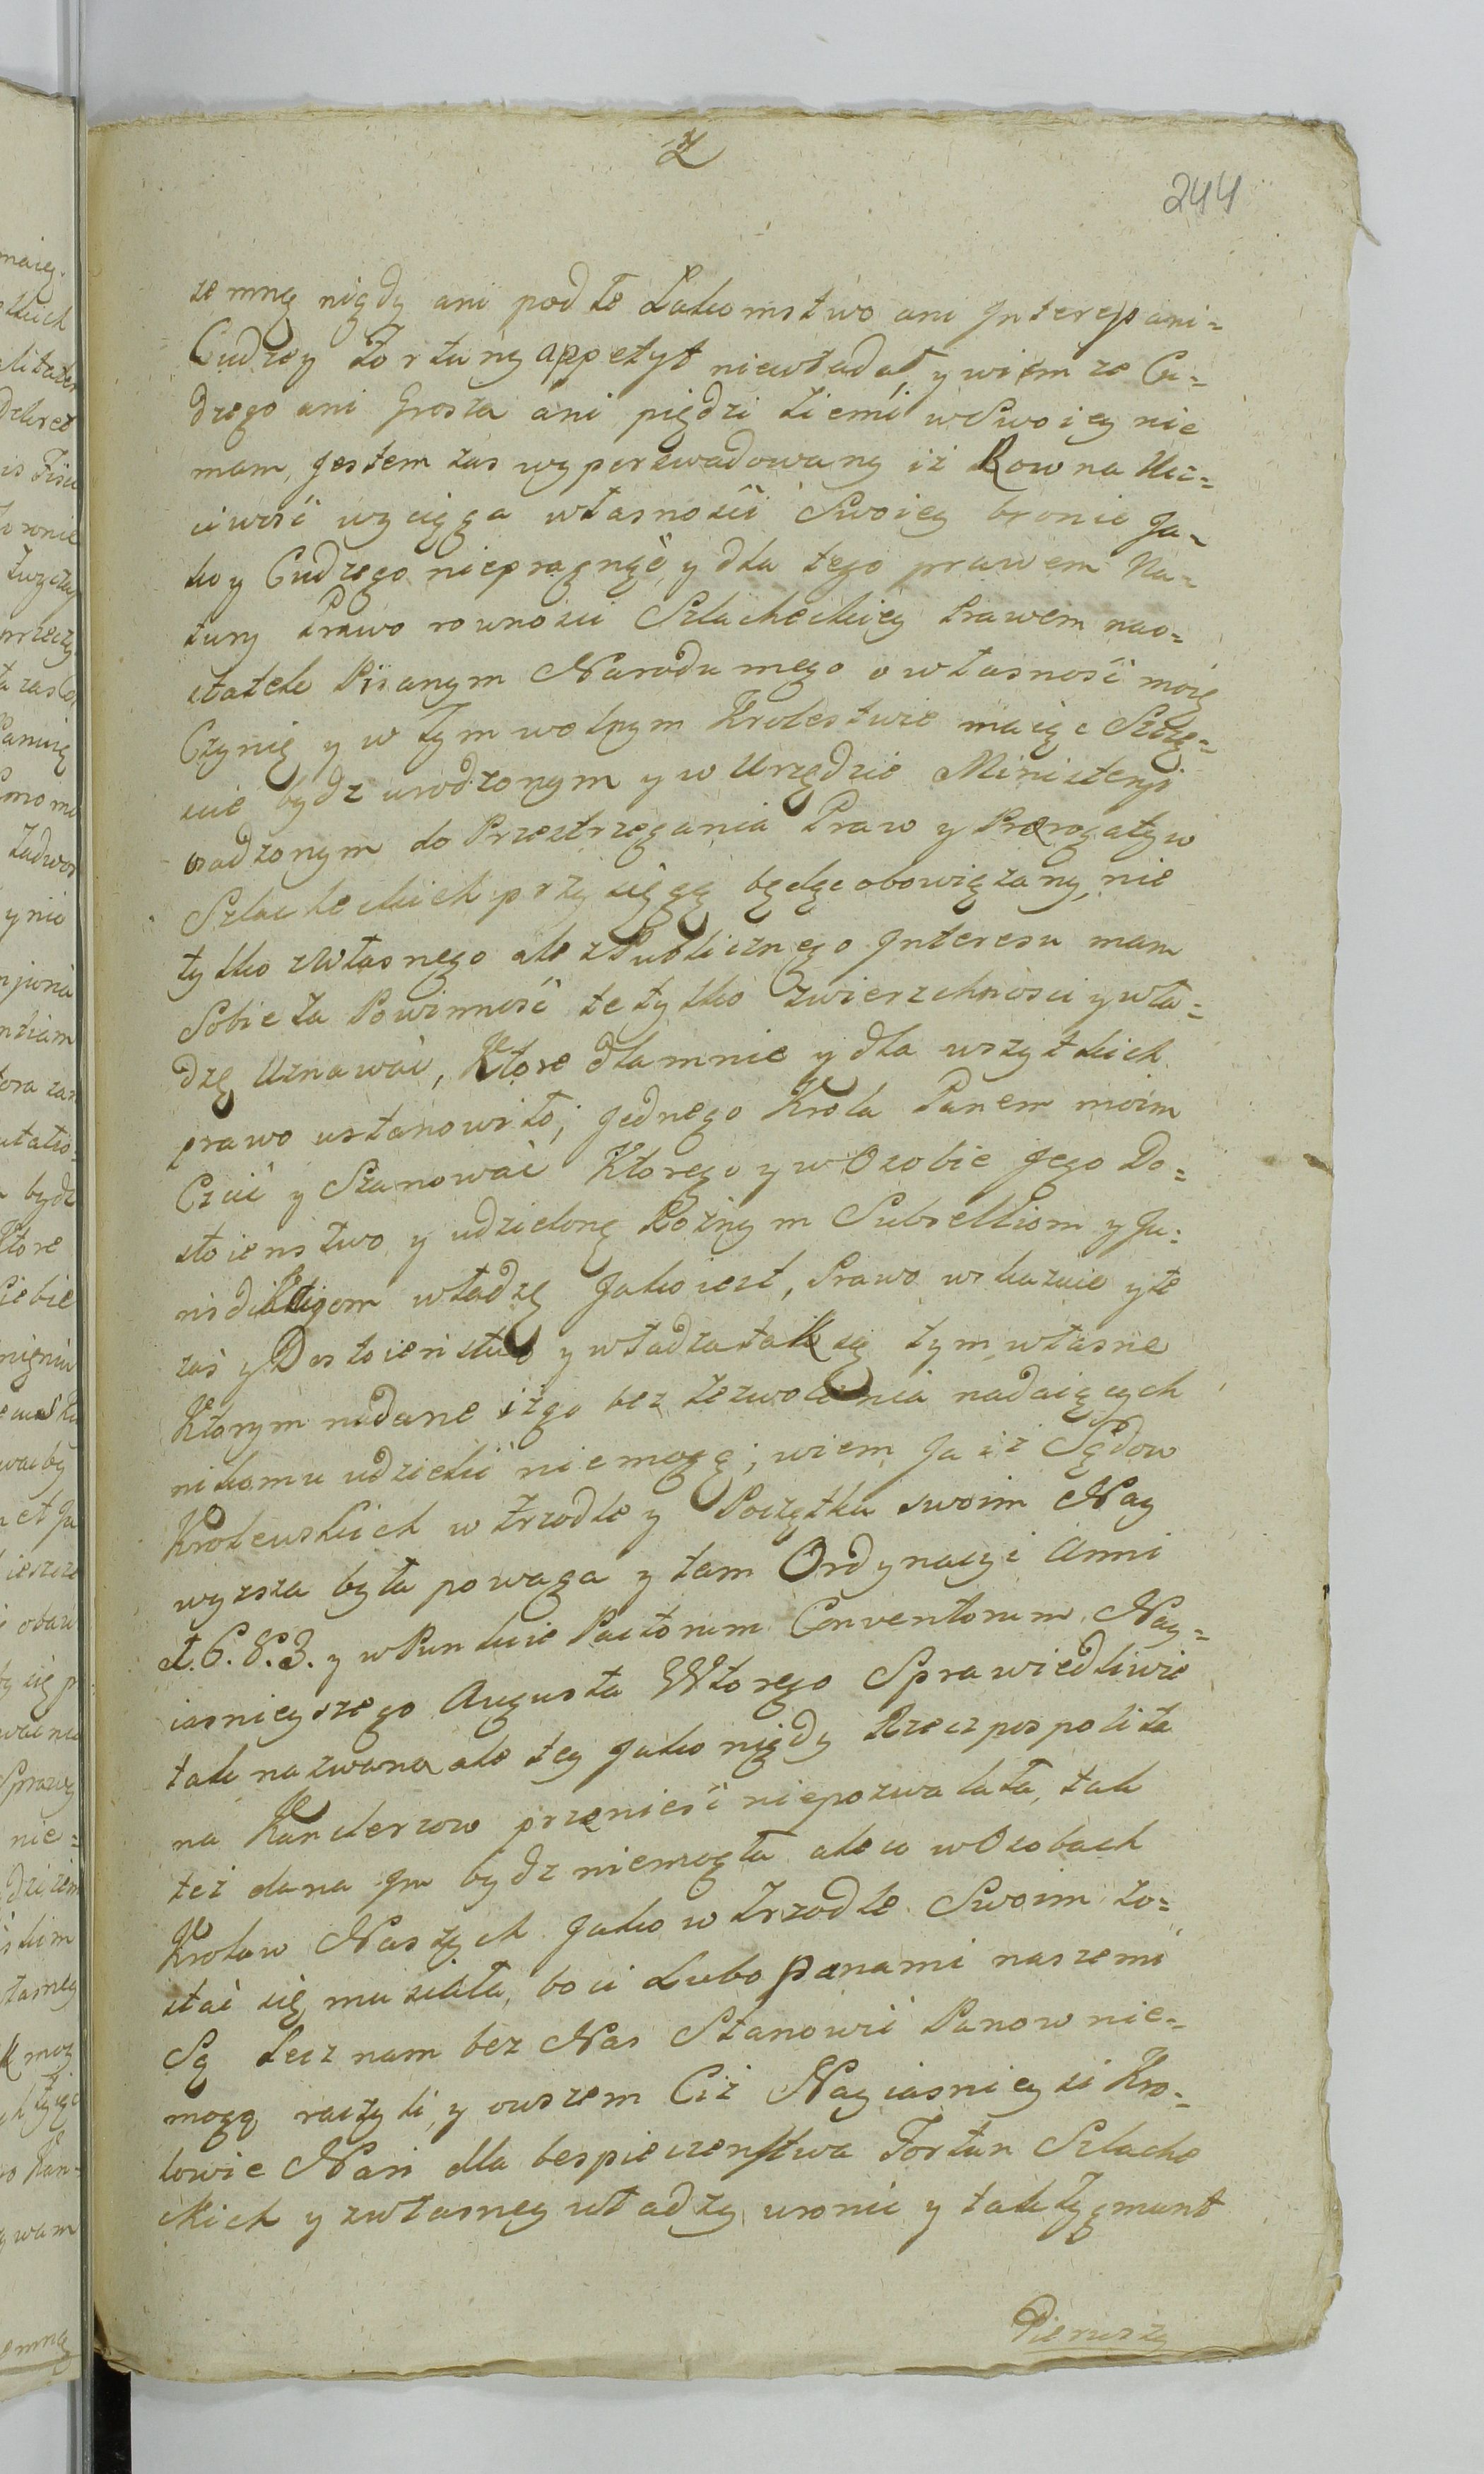 2
244
ze mną nigdy ani podłe Łakomstwo ani Interess ani=
Cudzey Fortuny appetyt niewładał, y wiem ze Cu=
dzego ani Grosza ani piędzi Ziemi w Swoiey nie
mam, Jestem zas wyperswadowany iż Rowna Ucz=
ciwość wyciąga własności Swoiey bronic Ja=
ko y Cudzego niepragnąć, y dla tego prawem Na=
tury Prawo rowności Szlacheckiey Prawem nao=
statek Pisanym Narodu mego o własność moię
Czynię y w tym wolnym Krolestwie maiąc Szczę=
scie bydz urodzonym y w Urzędzie Ministeryi
osadzonym do Przestrzegania Praw y Prerogatyw
Szlacheckich przysięgą będąc obowiązany, nie
tylko z własnego ale z Publicznego Interesu mam
Sobie za Powinność te tylko zwierzchności y wła=
dzę Uznawać, Ktore dla mnie y dla wszytkich
prawo ustanowiło; Jednego Krola Panem moim
Czcić y Szanować Ktorego y w Osobie Jego Do=
stoienstwo y udzieloną Rożnym Subselliom y Ju=
risdikcyom władzę Jako iest, Prawo wskazuie y te
zaś y Dostoienstwo y władza tak są tym własne
Ktorym nadane iż go bez zezwolenia nadaiących
nikomu udzielić niemogą; wiem Ja iż Sądow
Krolewskich w Zrzodle y Początku swoim Nay
wyzsza była powaga y tam Ordynacyi Anni
1.6.8.3. y w Punkcie Pactorum Conventorum Nay=
iasnieyszego Augusta Wtorego Sprawiedliwie
tak nazwana ale tey Jako nigdy Rzeczpospolita
na Kanclerzow przenieść niepozwalała, tak
też dana Im bydz niemogła ale w Osobach
Krolow Naszych Jako w Zrzodle Swoim zo=
stać się musiała, bo ci Lubo Panami naszemi
Są Lecz nam bez Nas Stanowić Panow nie=
mogą raczyli, y owszem Ciż Nayiasnieysi Kro=
lowie Nasi dla bespieczenstwa Fortun Szlache
ckich y z własney władzy uronić y tak Zygmunt
Pierwszy